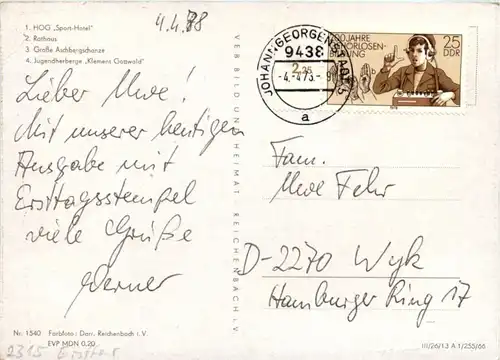 1. HOG „Sport-Hotel"
2. Rathaus
3. Große Aschbergschanze
4. Jugendherberge „Klemens Gottwald"
4.4.78
Lieber Uwe!
Mit unserer heutigen
Ausgabe mit
Ersttagsstempel
viele Grüße
Werner
Nr. 1540 Farbfoto: Darr, Reichenbach i. V.
EVP MDN 0,20
2315
VERB BILD UND HEIMAT REICHENBACH I. V.
JOHANNGEORGENSTADT
9438
a
JAHRE
25
DDR
Fam.
Uwe Fehr
D-2270 Wyk
Hamburger Ring 17
III/26/13 A 1/255/66